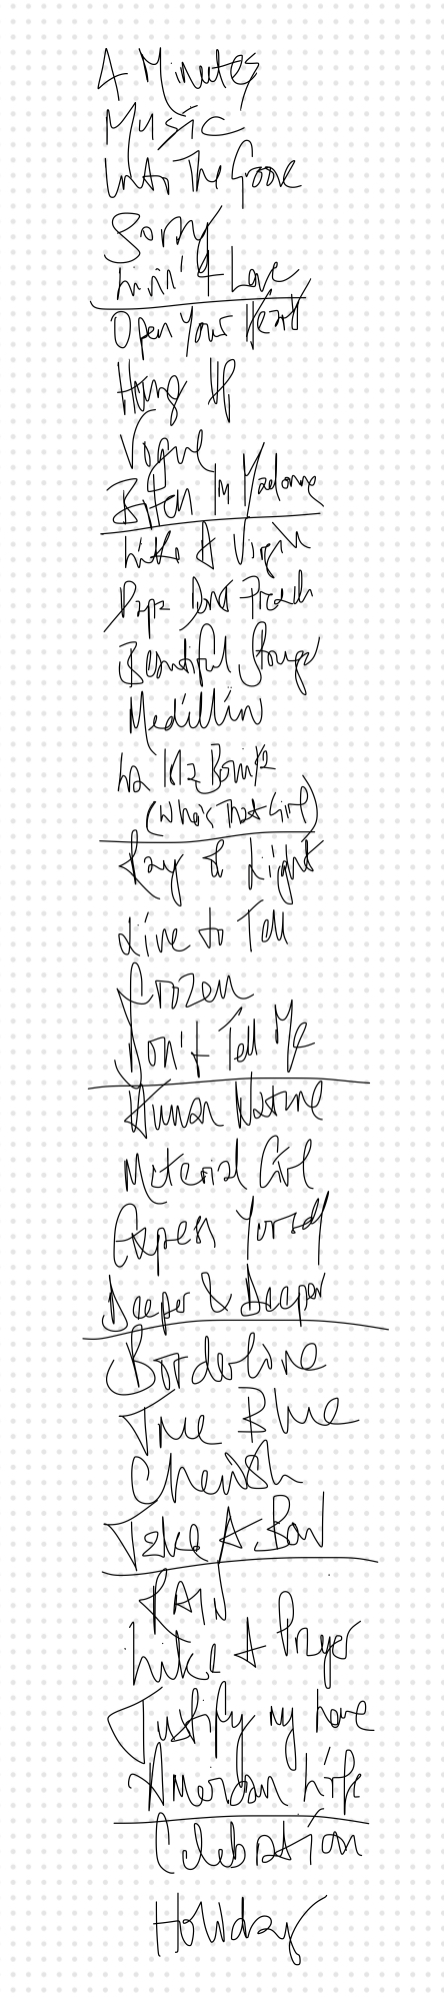 4 Minutes
Music
Into The Groove
Sorry
Livin' 4 Love
Open Your Heart
Hung Up
Vogue
Bitch Im Madonna
Like A Virgin
Papa Dont Preach
Beautiful Stranger
Medillin
La Isla Bonita
(Who's That Girl)
Ray of Light
Live to Tell
Frozen
Don't Tell Me
Human Nature
Material Girl
Express Yourself
Deeper & Deeper
Borderline
True Blue
Cherish
Take A Bow
RAIN
Like A Prayer
Justify my Love
American Life
Celebration
Holiday